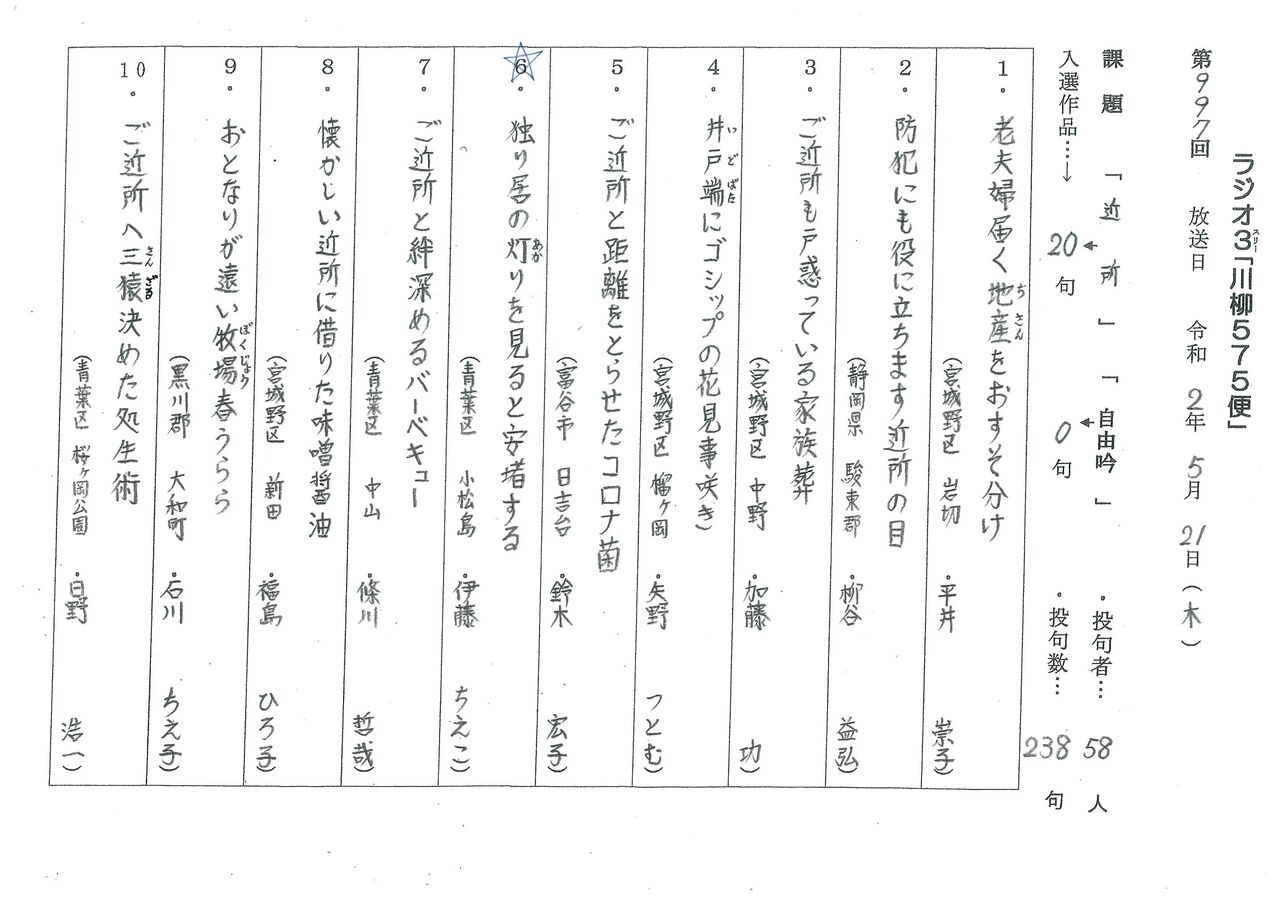 ラジオ3「川柳575便」
スリー
第997回 放送日 令和2年5月21日(木)
課題 「近所」「自由吟」 ・投句者…58人
入選作品…→ 20句 0句 ・投句数…238句
1. 老夫婦届く地産をおすそ分け
ぢさん
(宮城野区 岩切 ・平井 崇子)
2. 防犯にも役に立ちます近所の目
(静岡県 駿東郡 ・柳谷 益弘)
3. ご近所も戸惑っている家族葬
(宮城野区 中野 ・加藤 功)
4. 井戸端にゴシップの花見事咲き
いどばた
(宮城野区 榴ヶ岡 ・矢野 つとむ)
5. ご近所と距離をとらせたコロナ菌
(富谷市 日吉台 ・鈴木 宏子)
6. 独り居の灯りを見ると安堵する
あか
(青葉区 小松島 ・伊藤 ちえこ)
7. ご近所と絆深めるバーベキュー
(青葉区 中山 ・條川 哲哉)
8. 懐かしい近所に借りた味噌醤油
(宮城野区 新田 ・福島 ひろ子)
9. おとなりが遠い牧場春うらら
ぼくじょう
(黒川郡 大和町 ・石川 ちえ子)
10. ご近所へ三猿決めた処生術
さんざる
(青葉区 桜ヶ岡公園 ・日野 浩一)